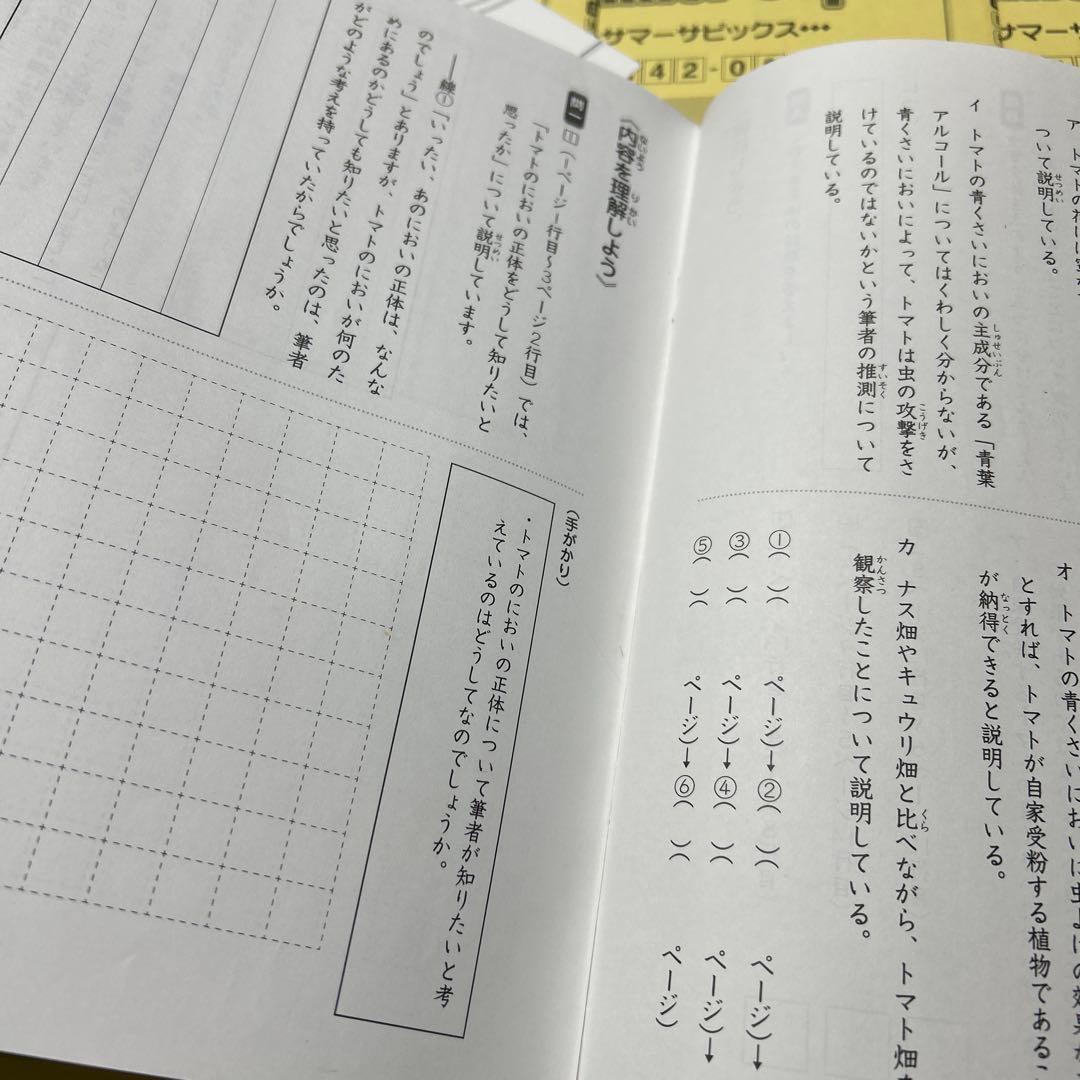 サマーサピックス…
サマーサ
42-0
ついて説明している。
イ トマトの青くさいにおいの主成分である「青葉
アルコール」についてはくわしく分からないが、
青くさいにおいによって、トマトは虫の攻撃をさ
けているのではないかという筆者の推測について
説明している。
オ トマトの青くさいにおいに虫よけの効果
とすれば、トマトが自家受粉する植物であるこ
が納得できると説明している。
カ ナス畑やキュウリ畑と比べながら、トマト畑
観察したことについて説明している。
①( ページ)→②( ページ)→
③( ページ)→④( ページ)→
⑤( ページ)→⑥( ページ)
《内容を理解しよう》
問一 (1ページ1行目〜3ページ2行目)では、
「トマトのにおいの正体をどうして知りたいと
思ったか」について説明しています。
――線①「いったい、あのにおいの正体は、なんな
のでしょう」とありますが、トマトのにおいが何のた
めにあるのかどうしても知りたいと思ったのは、筆者
がどのような考えを持っていたからでしょうか。
(手がかり)
・トマトのにおいの正体について筆者が知りたいと考
えているのはどうしてなのでしょうか。